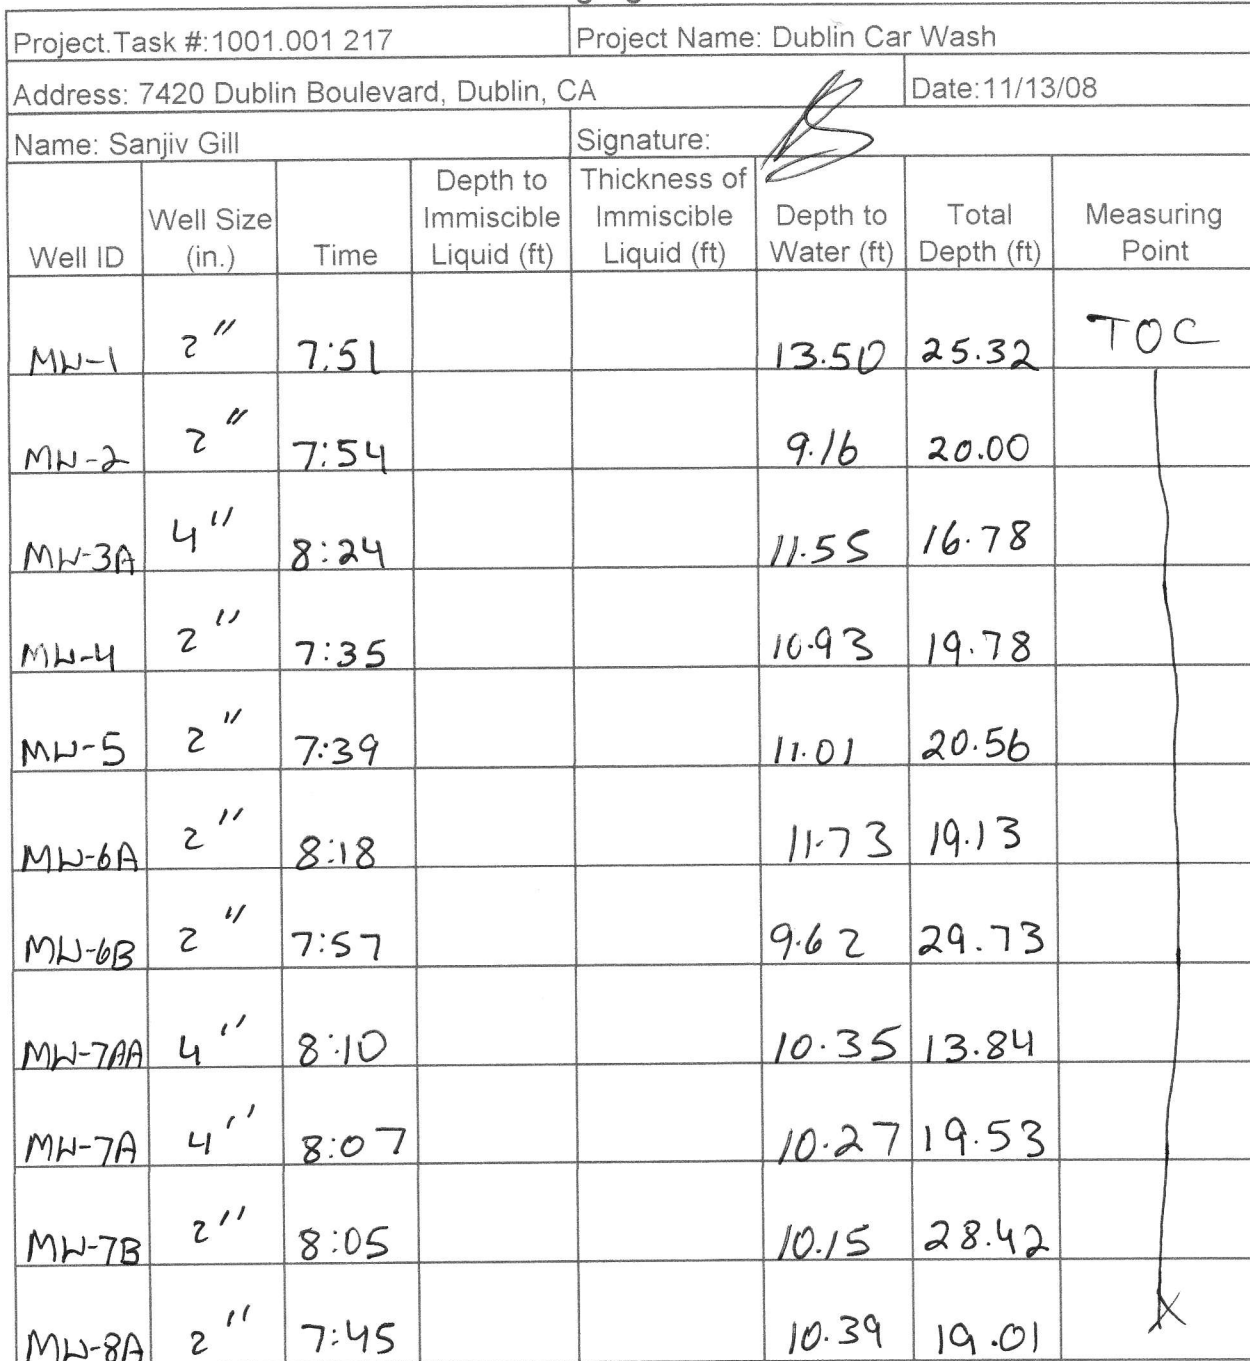 Project.Task #:1001.001 217 Project Name: Dublin Car Wash
Address: 7420 Dublin Boulevard, Dublin, CA Date:11/13/08
Name: Sanjiv Gill Signature:
Well ID Well Size (in.) Time Depth to Immiscible Liquid (ft) Thickness of Immiscible Liquid (ft) Depth to Water (ft) Total Depth (ft) Measuring Point
MW-1 2" 7:51 13.50 25.32 TOC
MW-2 2" 7:54 9.16 20.00
MW-3A 4" 8:24 11.55 16.78
MW-4 2" 7:35 10.93 19.78
MW-5 2" 7:39 11.01 20.56
MW-6A 2" 8:18 11.73 19.13
MW-6B 2" 7:57 9.62 29.73
MW-7AA 4" 8:10 10.35 13.84
MW-7A 4" 8:07 10.27 19.53
MW-7B 2" 8:05 10.15 28.42
MW-8A 2" 7:45 10.39 19.01